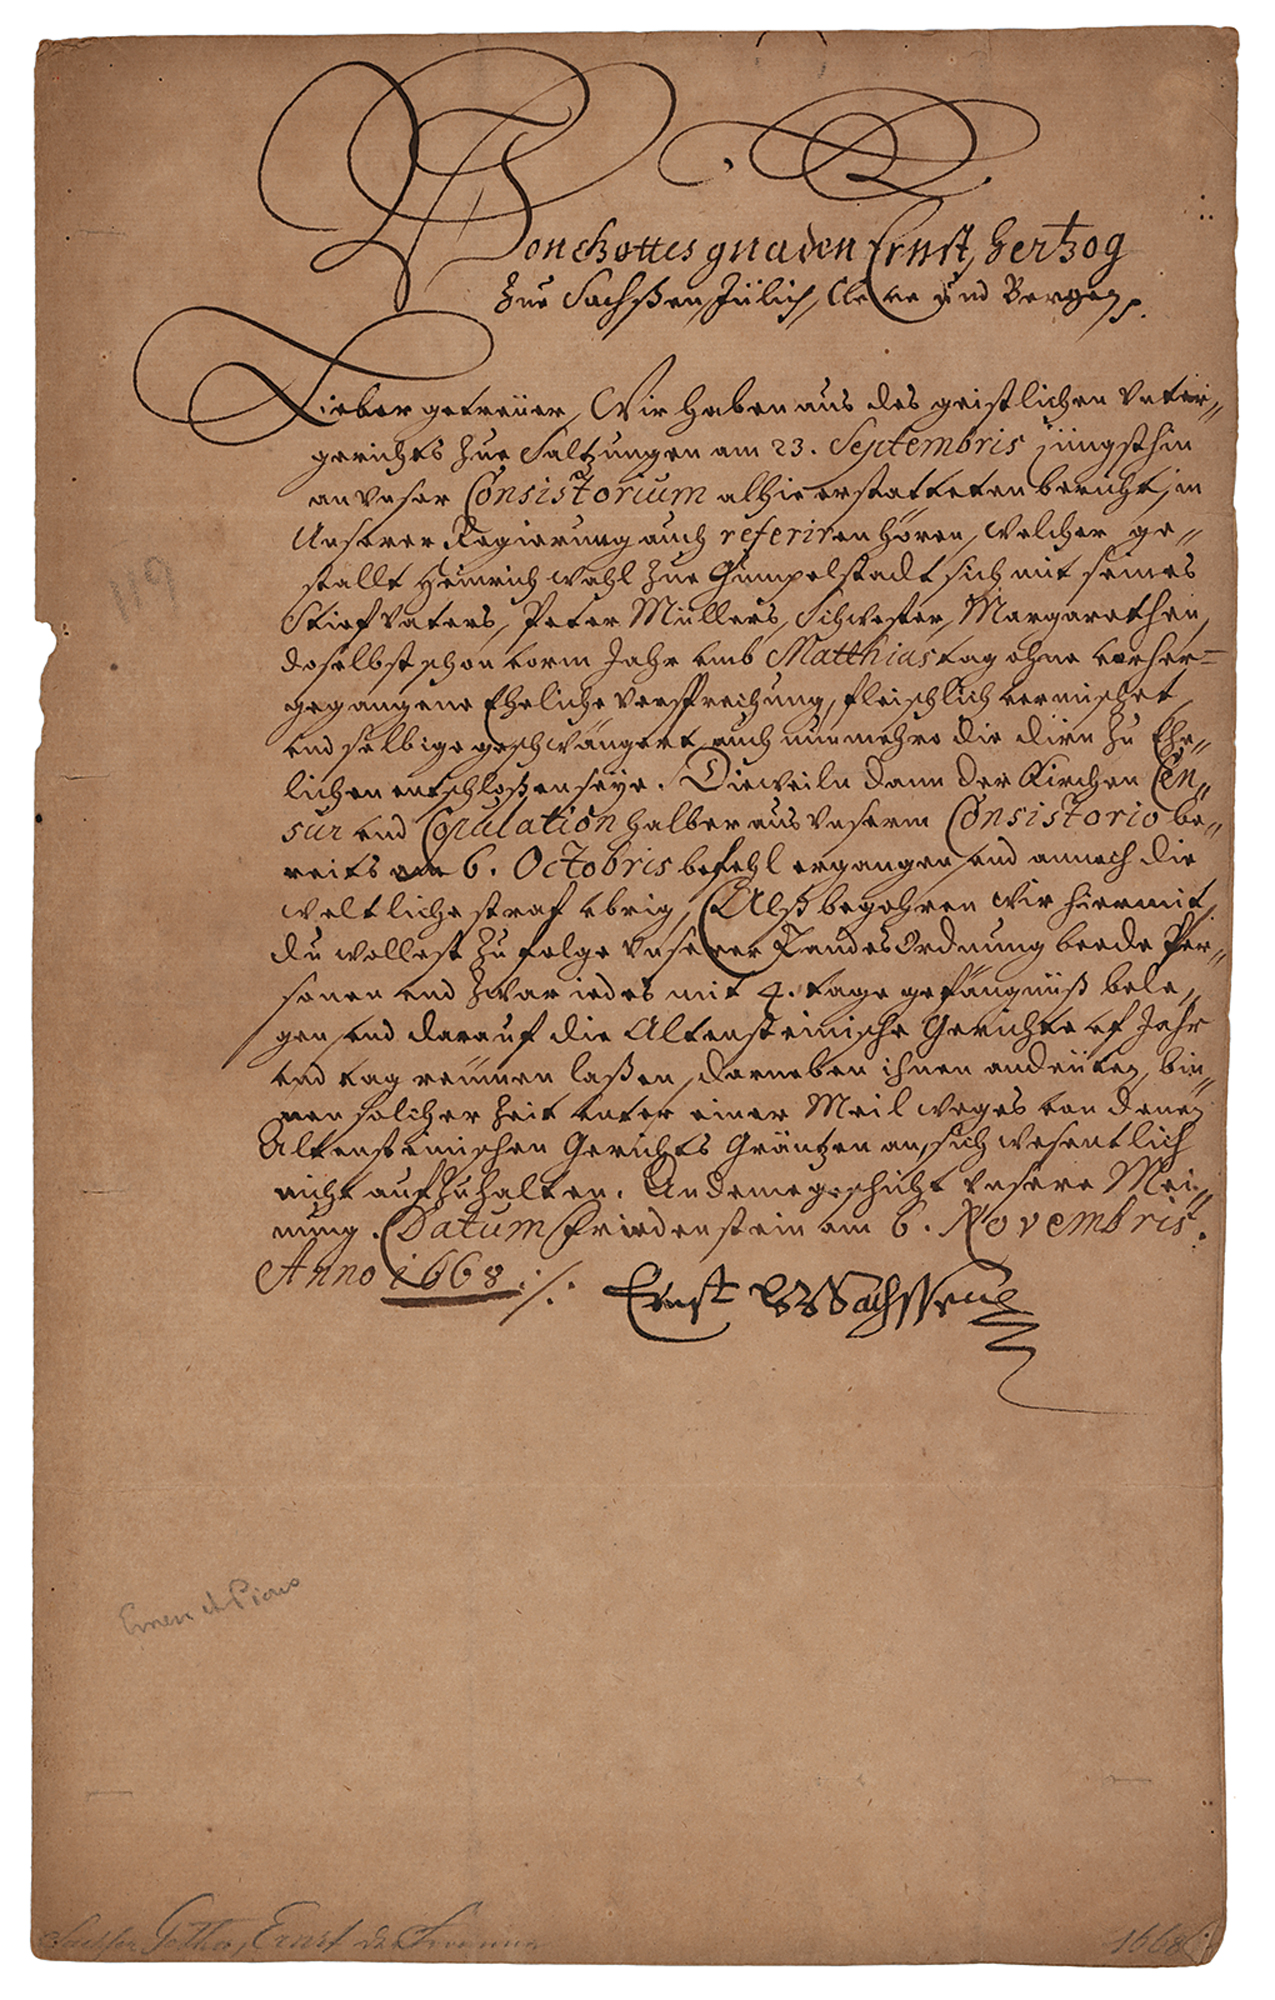 Von Gottes gnaden Ernst, Hertzog
zue Sachßen, Jülich, Cleve und Bergen p.
Lieber getreüer, Wir haben aus des geistlichen Unter„
gerichts zue Saltzungen am 23. Septembris jüngsthin
an Unser Consistorium alhie erstatteten bericht, in
Unserer Regierung auch referiren hören, welcher ge„
stallt Heinrich Wahl zue Gumpelstadt sich mit seines
Stiefvaters, Peter Müllers, Schwester, Margarethen,
doselbst schon vorm Jahr umb Matthias tag ohne vorher=
gegangene Eheliche Versprechung, fleischlich vermischet,
und selbige geschwängert, auch nunmehro die dirn zu Ehe„
lichen entschloßen seye. Dieweiln dann der Kirchen Cen„
sur und Copulation halber aus Unserm Consistorio be„
reits am 6. Octobris befehl ergangen, und annoch die
weltliche straf übrig, Alß begehren Wir hiermit,
du wollest zu folge Unserer Landes Ordnung beede Per„
sonen und zwar iedes mit 4. tage gefängnüß bele„
gen, und darauf die Altensteinische Gerichte uf Jahr
und tag reümen laßen, darneben ihnen andeüten, bin„
nen solcher Zeit unter einer Meil weges von denen
Altensteinischen Gerichts Gräntzen an, sich wesentlich
nicht aufzuhalten. An deme geschicht Unsere Mei„
nung. Datum Friedenstein am 6. Novembris.
Anno 1668 ./.
Ernst HzSachssen
119
Sachsen Gotha, Ernst der Fromme
1668